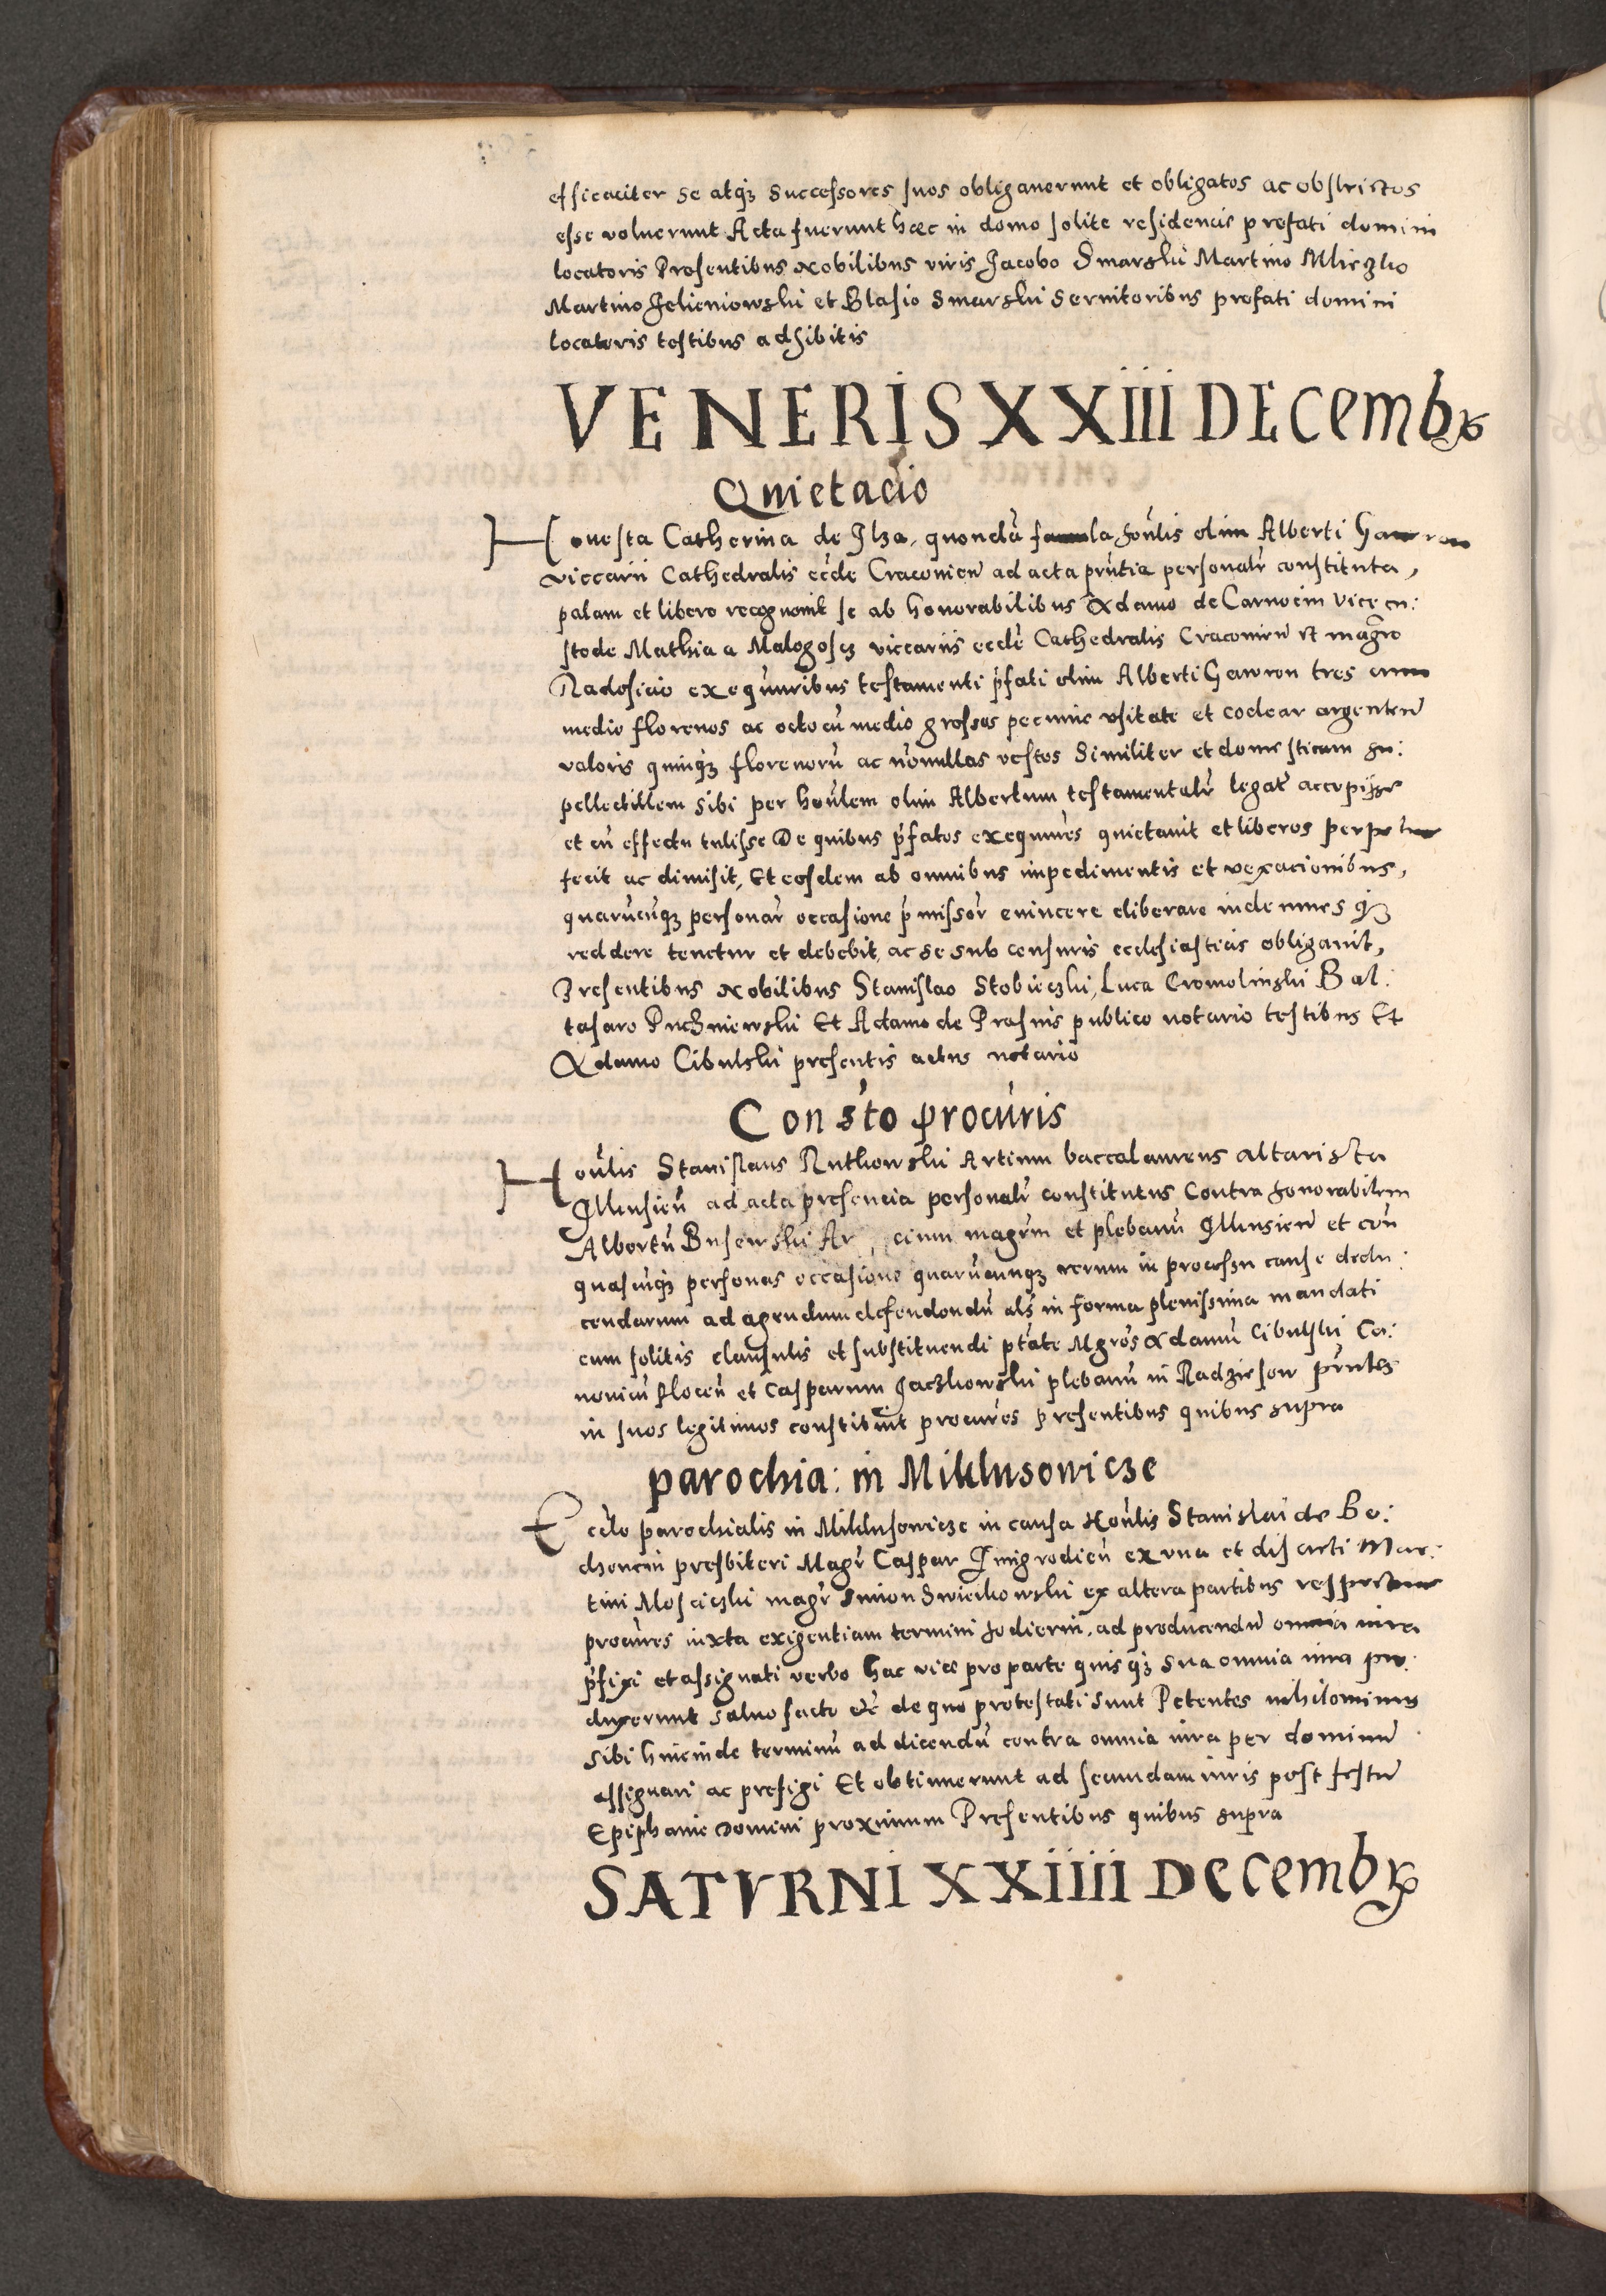 efficaciter se atq3 successores suos obligauerunt et obligatos ac obstrictos
esse voluerunt Acta fuerunt haec in domo solite residencie prefati domini
locatoris Presentibus Nobilibus viris Jacobo Smarski Martino
Martino Jelieniowski et Blasio Smarski seruitoribus prefati domini
locatoris testibus adhibitis
VENERIS XXIII DECembr
Quietacio
Honesta Catherina de Ilza, quondā famula hon̄lis olim Alberti Gawron
viccarii Cathedralis eccl̄e Cracouien̄ ad acta pn̄tia personal̄r constituta,
palam et libere recognouit se ab honorabilibus Adamo de Carnocin vice cu:
stode Mathia a Malogosz viccariis eccl̄e Cathedralis Cracouien̄ et magr̄o
Radosicio exequutoribus testamenti p̄fati olim Alberti Gawron tres cum
medio florenos ac octo cū medio grossos pecunie vsitate et coclear argenteū
valoris quinq3 florenorū ac nōnullas vestes similiter et domesticam su:
pellectillem sibi per hon̄lem olim Albertum testamental̄r legat̄ accepisse
et cū effectu tulisse De quibus p̄fatos exequutores quietauit et liberos perpetuo
fecit ac dimisit, Et eosdem ab omnibus impedimentis et vexacionibus,
quarūcūq3 personar̄ occasione p̄missor̄ euincere eliberare indemnes q3
reddere tenetur et debebit, ac se sub censuris ecclesiasticis obligauit,
Presentibus Nobilibus Stanislao Stobieczki, Luca Cromolinski Bal:
tasaro Puczniewski Et Adamo de Prasnis publico notario testibus Et
Adamo Cibulski presentis actus notario
Consto procūris
Hon̄lis Stanislaus Rutkowski Artium baccalaureus altarista
Illkusien̄ ad acta presencia personal̄r constitutus Contra honorabilem
Albertū Busewski Ar cium magr̄m et plebanū Illkusien̄ et con̄
quascūq3 personas occasione quarūcunq3 rerum in processu cause dedu:
cendarum ad agendum defendendū al̄s in forma plenissima mandati
cum solitis clausulis et substituendi pt̄ate Mgros Adamū Cibulski Ca:
nonicū ploceū et Casparum Jaczkowski plebanū in Radziesow pn̄tes
in suos legitimos constituit procures presentibus quibus supra
parochia: in Miklusowicze
Eccl̄e parochialis in Miklusowicze in causa Hon̄lis Stanislai de Bo:
choncin presbiteri Magr̄ Caspar Jmigrodien̄ ex vna et discreti Mar:
tini Moscicki magr̄ Simon Swieckowski ex altera partibus respectiue
procūres iuxta exigentiam termini hodierni, ad producendū omnia iura
p̄fixi et assignati verbo hac vice pro parte quisq3 sua omnia iura pro:
duxerunt saluo facto etc̄ de quo protestati sunt Petentes nihilominus
sibi hincinde terminū ad dicendū contra omnia iura per dominū
assignari ac prefigi Et obtinuerunt ad secundam iuris post festū
Epiphanie Domini proximum Presentibus quibus supra
SATVRNI XXIIII DECembr